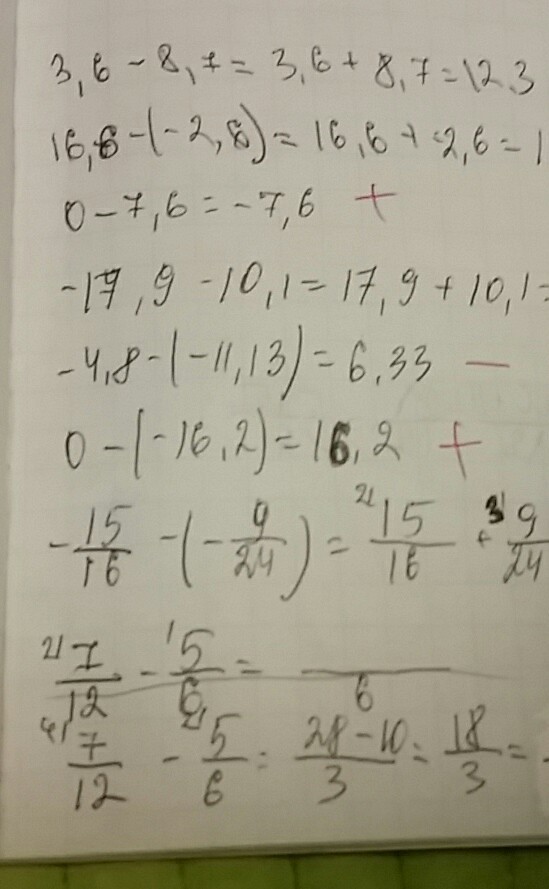 3,6 - 8,7 = 3,6 + 8,7 = 12,3
16,6 - (-2,6) = 16,6 + 2,6 = 1
0 - 7,6 = -7,6 +
-17,9 - 10,1 = 17,9 + 10,1 =
-4,8 - (-11,13) = 6,33 —
0 - (-16,2) = 16,2 +
-15/16 - (-9/24) = 2) 15/16 + 3) 9/24
2) 7/12 - 1) 5/6 = /6
4) 7/12 - 2) 5/6 = (28-10)/3 = 18/3 = -